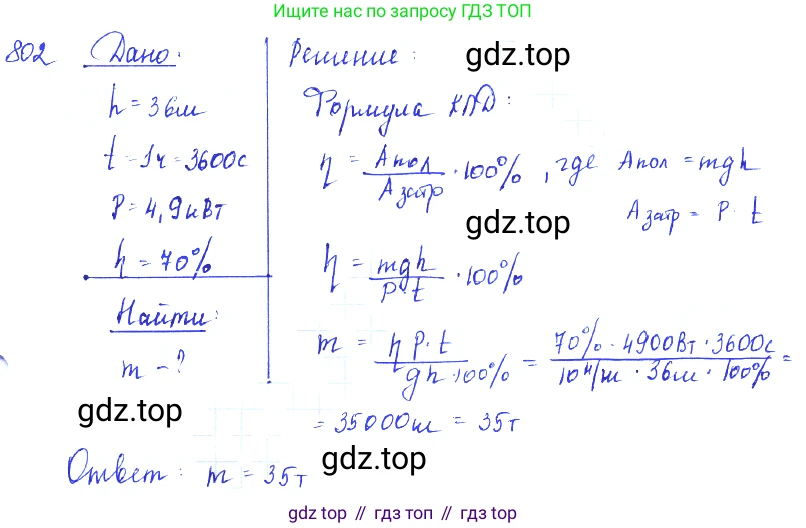 Ищите нас по запросу ГДЗ ТОП
802 Дано:
h = 36м
t = 1ч = 3600с
P = 4,9кВт
η = 70%
Найти:
m - ?
Решение:
gdz.top
Формула КПД:
η = Aпол / Aзатр · 100%, где Aпол = mgh
Aзатр = P · t
gdz.top
η = mgh / P·t · 100%
m = η P·t / gh·100% = 70% · 4900Вт · 3600с / 10 Н/кг · 36м · 100% =
= 35000кг = 35т
gdz.top
Ответ: m = 35т
gdz.top
gdz.top // гдз топ // gdz.top